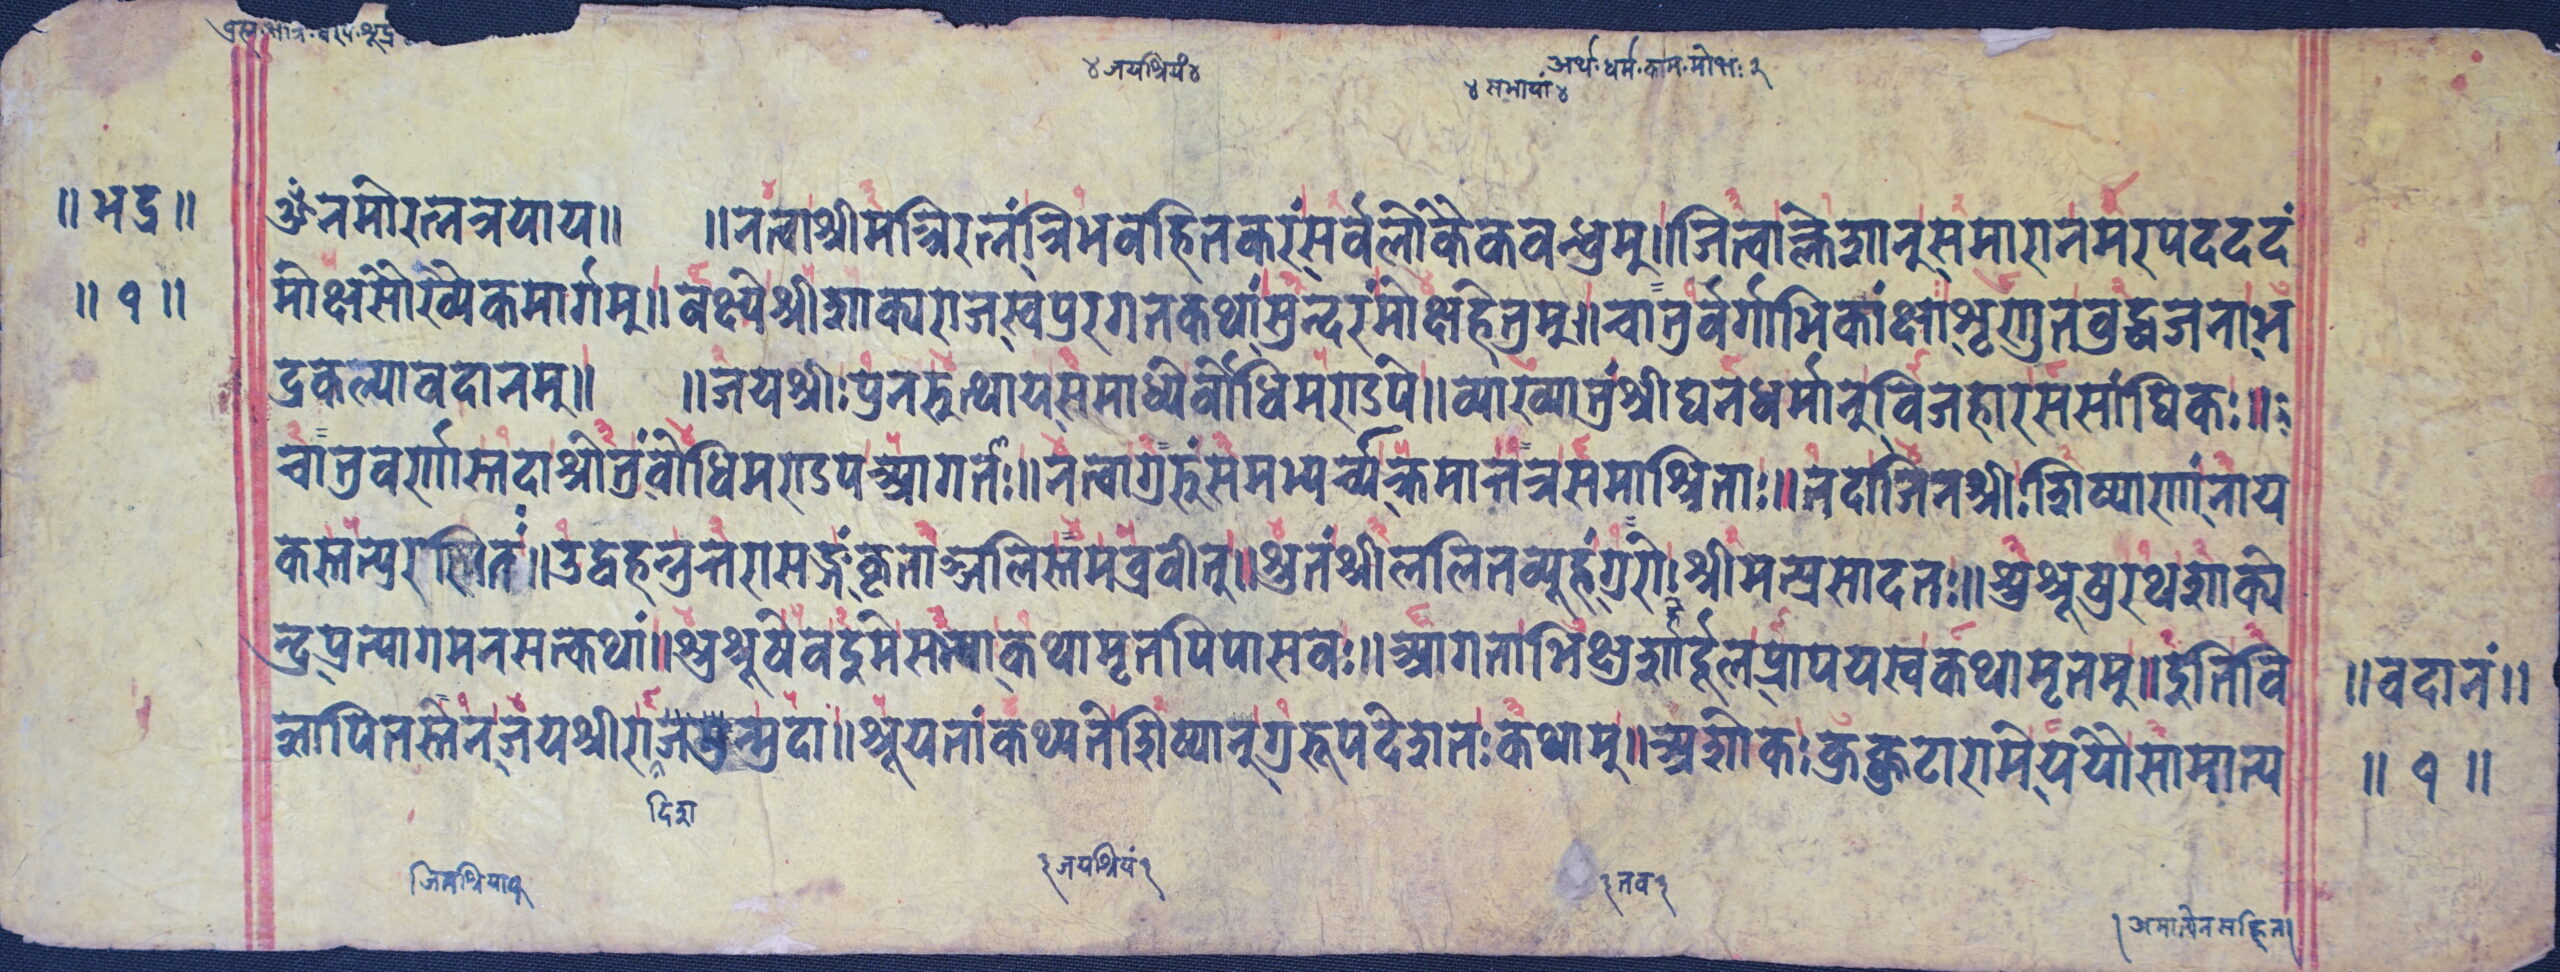 अर्थ·धर्म·काम·मोक्षः २
४ जयश्रियं ४
४ सभायां ४
॥ भद्र ॥
॥ १ ॥
ॐ नमो रत्नत्रयाय ॥ ॥ नत्वा श्रीमत्त्रिरत्नं त्रिभवहितकरं सर्वलोकैकबन्धुम् ॥ जित्वा क्लेशान् स मारानमरपददं
मोक्षसौख्यैकमार्गम् ॥ वक्ष्ये श्रीशाक्यराजस्वपुरगतकथां सुन्दरं मोक्षहेतुम् ॥ चातुर्वर्गाभिकांक्षा शृणुत बुद्धजना भ
द्रकल्पावदानम् ॥ ॥ जयश्रीः पुनरुत्थाय समाधेर्बोधिमण्डपे ॥ व्याख्यातुं श्रीघनधर्मान् विजहार ससांघिकः ॥
चातुवर्णास्तदा श्रोतुं बोधिमण्डप आगतः ॥ नत्वा गुरुं समभ्यर्च्य क्रमात्तत्र समाश्रिताः ॥ तदा जिनश्रीः शिष्याणां नाय
कस्तत्पुर स्थित ॥ उद्वहन्नुत्तरासङ्गं कृताञ्जलिस्तमब्रवीत् ॥ श्रुतं श्रीललितव्यूहं गुरो श्रीमत्प्रसादतः ॥ शुश्रूषुरथ शाक्ये
न्द्रप्रत्यागमनसत्कथां ॥ शुश्रूषव इमे सभ्या कथामृतपिपासवः ॥ आगता भिक्षुशार्दूल प्रापयस्व कथामृतम् ॥ इति वि
ज्ञापितस्तेन जयश्री ॥ श्रूयतां कथ्यते शिष्यानुगुरूपदेशतः कथाम् ॥ अशोकः कुक्कुटारामे ययौ सामात्य
॥ वदानं ॥
॥ १ ॥
दिश
३ जयश्रियं १
१ तव १